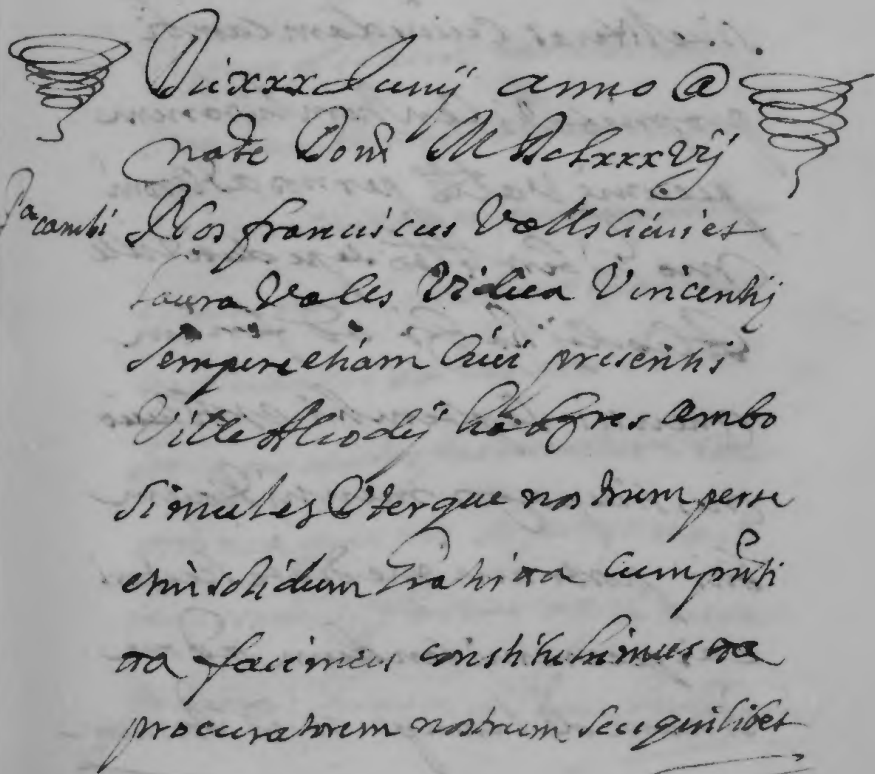 Die xxx Junij anno @
natte Domi MDclxxxvij
Pa cambi Nos franciscus Valls Civis et
Laura Valls Vidua Vincentij
Sempere etiam Civi presentis
Ville Alcodij habtres ambo
simul et Uterque nostrum perse
et in solidum Gratis cum prnti
facimus constituhimus
procuratorem nostrum seu quilibet